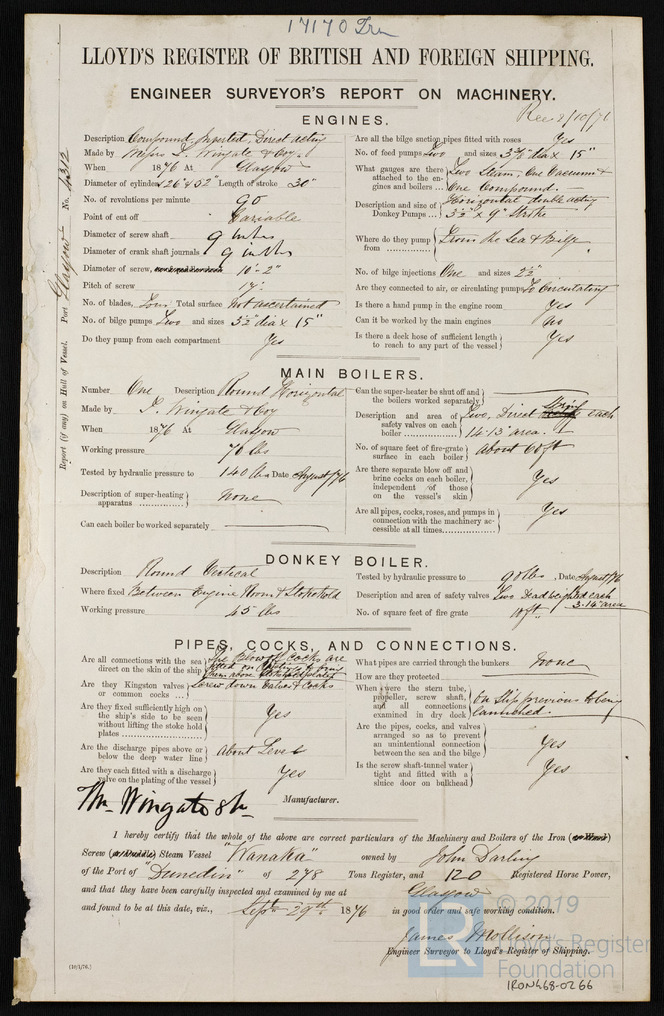 17170 Irn
LLOYD'S REGISTER OF BRITISH AND FOREIGN SHIPPING.
ENGINEER SURVEYOR'S REPORT ON MACHINERY.
Rec 3/10/76
Report (if any) on Hull of Vessel. Port Glasgow No. 4312
ENGINES.
Description Compound, Inverted, Direct acting
Made by Messrs T. Wingate & Coy.
When 1876 At Glasgow
Diameter of cylinders 26" & 52" Length of stroke 30"
No. of revolutions per minute 90
Point of cut off Variable
Diameter of screw shaft 9 inches
Diameter of crank shaft journals 9 inches
Diameter of screw, 10'-2"
Pitch of screw 17'
No. of blades, Four Total surface Not ascertained
No. of bilge pumps Two and sizes 3½" dia x 15"
Do they pump from each compartment Yes
Are all the bilge suction pipes fitted with roses Yes
No. of feed pumps Two and sizes 3½" dia x 15"
What gauges are there attached to the engines and boilers ... Two Steam, One Vacuum & One Compound.
Description and size of Donkey Pumps ... Horizontal double acting 3½" x 9" Stroke
Where do they pump from ............ From the Sea & Bilge
No. of bilge injections One and sizes 2½
Are they connected to air, or circulating pumps To Circulating
Is there a hand pump in the engine room Yes
Can it be worked by the main engines No
Is there a deck hose of sufficient length to reach to any part of the vessel Yes
MAIN BOILERS.
Number One Description Round Horizontal
Made by T. Wingate & Coy
When 1876 At Glasgow
Working pressure 70 lbs
Tested by hydraulic pressure to 140 lbs Date August/76
Description of super-heating apparatus ............ None
Can each boiler be worked separately
Can the super-heater be shut off and the boilers worked separately
Description and area of safety valves on each boiler ............ Two, Direct Weight each 14.13" area.
No. of square feet of fire-grate surface in each boiler About 60 ft
Are there separate blow off and brine cocks on each boiler, independent of those on the vessel's skin Yes
Are all pipes, cocks, roses, and pumps in connection with the machinery accessible at all times............ Yes
DONKEY BOILER.
Description Round Vertical
Where fixed Between Engine Room & Stokehold
Working pressure 45 lbs
Tested by hydraulic pressure to 90 lbs, Date August/76
Description and area of safety valves Two Deadweighted each 3.14" area
No. of square feet of fire grate 10 ft
PIPES, COCKS, AND CONNECTIONS.
Are all connections with the sea direct on the skin of the ship The Blow off Cocks are fitted on Castings to bring them above Stokehold plates
Are they Kingston valves or common cocks ... Screw down Valves & Cocks
Are they fixed sufficiently high on the ship's side to be seen without lifting the stoke hold plates ............ Yes
Are the discharge pipes above or below the deep water line About Level
Are they each fitted with a discharge valve on the plating of the vessel Yes
What pipes are carried through the bunkers None
How are they protected
When were the stern tube, propeller, screw shaft, and all connections examined in dry dock On Slip previous to being launched.
Are the pipes, cocks, and valves arranged so as to prevent an unintentional connection between the sea and the bilge Yes
Is the screw shaft-tunnel water tight and fitted with a sluice door on bulkhead Yes
Manufacturer.
I hereby certify that the whole of the above are correct particulars of the Machinery and Boilers of the Iron (or Wood)
Screw (or Paddle) Steam Vessel "Wanaka" owned by John Darling
of the Port of "Dunedin" of 278 Tons Register, and 120 Registered Horse Power,
and that they have been carefully inspected and examined by me at Glasgow
and found to be at this date, viz., Septr 29th 1876 in good order and safe working condition.
James Mollison
Engineer Surveyor to Lloyd's Register of Shipping.
(10/1/76.)
© 2019
LR
Lloyd's Register
Foundation
IRON468-0266